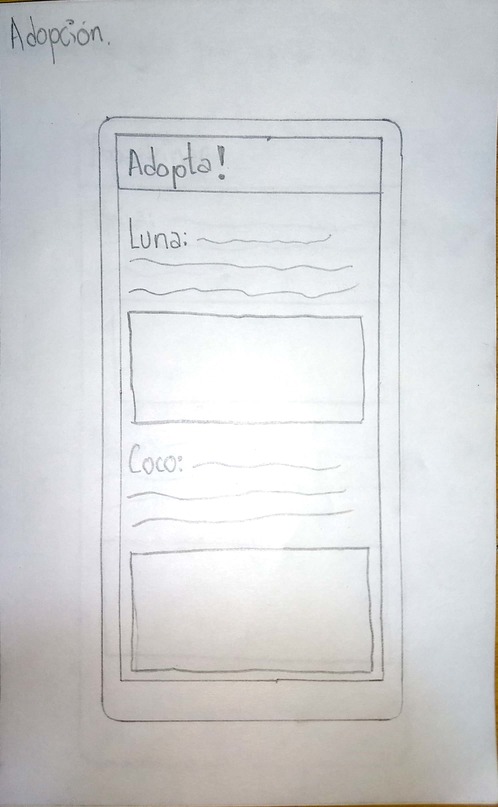 Adopción.
Adopta!
Luna:
Coco: